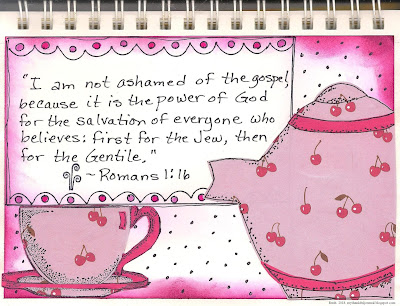 "I am not ashamed of the gospel,
because it is the power of God
for the salvation of everyone who
believes: first for the Jew, then
for the Gentile."
~Romans 1:16